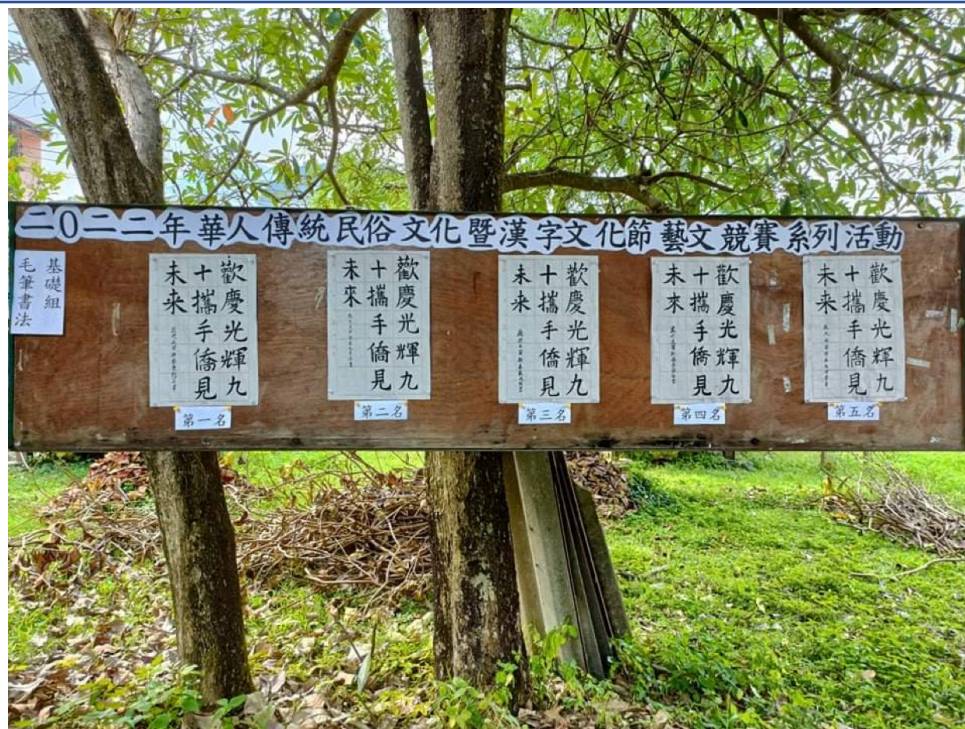 二〇二二年華人傳統民俗文化暨漢字文化節藝文競賽系列活動
基礎組
毛筆書法
歡慶光輝九
十攜手僑見
未来
第一名
歡慶光輝九
十攜手僑見
未來
第二名
歡慶光輝九
十攜手僑見
未来
第三名
歡慶光輝九
十攜手僑見
未來
第四名
歡慶光輝九
十攜手僑見
未來
第五名